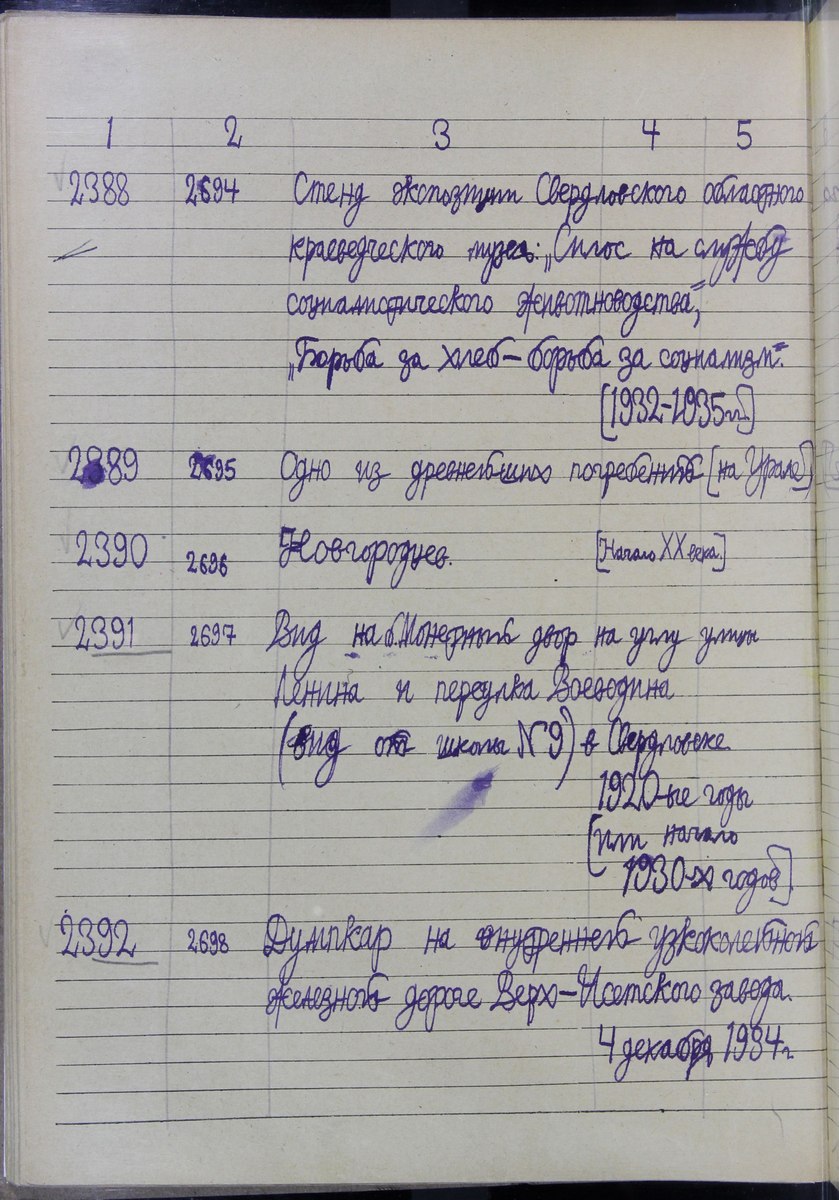 1 2 3 4 5
2388 2694 Стенд экспозиции Свердловского областного
краеведческого музея: „Силос на службу
социалистического животноводства",
„Борьба за хлеб — борьба за социализм".
[1932-1935гг.]
2389 2695 Одно из древнейших погребений [на Урале]
2390 2696 Новгородцев. [Начало XX века.]
2391 2697 Вид на б. Монетный двор на углу улицы
Ленина и переулка Воеводина
(вид от школы №9) в Свердловске
1920-ые годы
[или начало
1930-х годов]
2392 2698 Думпкар на внутренней узкоколейной
железной дороге Верх-Исетского завода.
4 декабря 1934г.